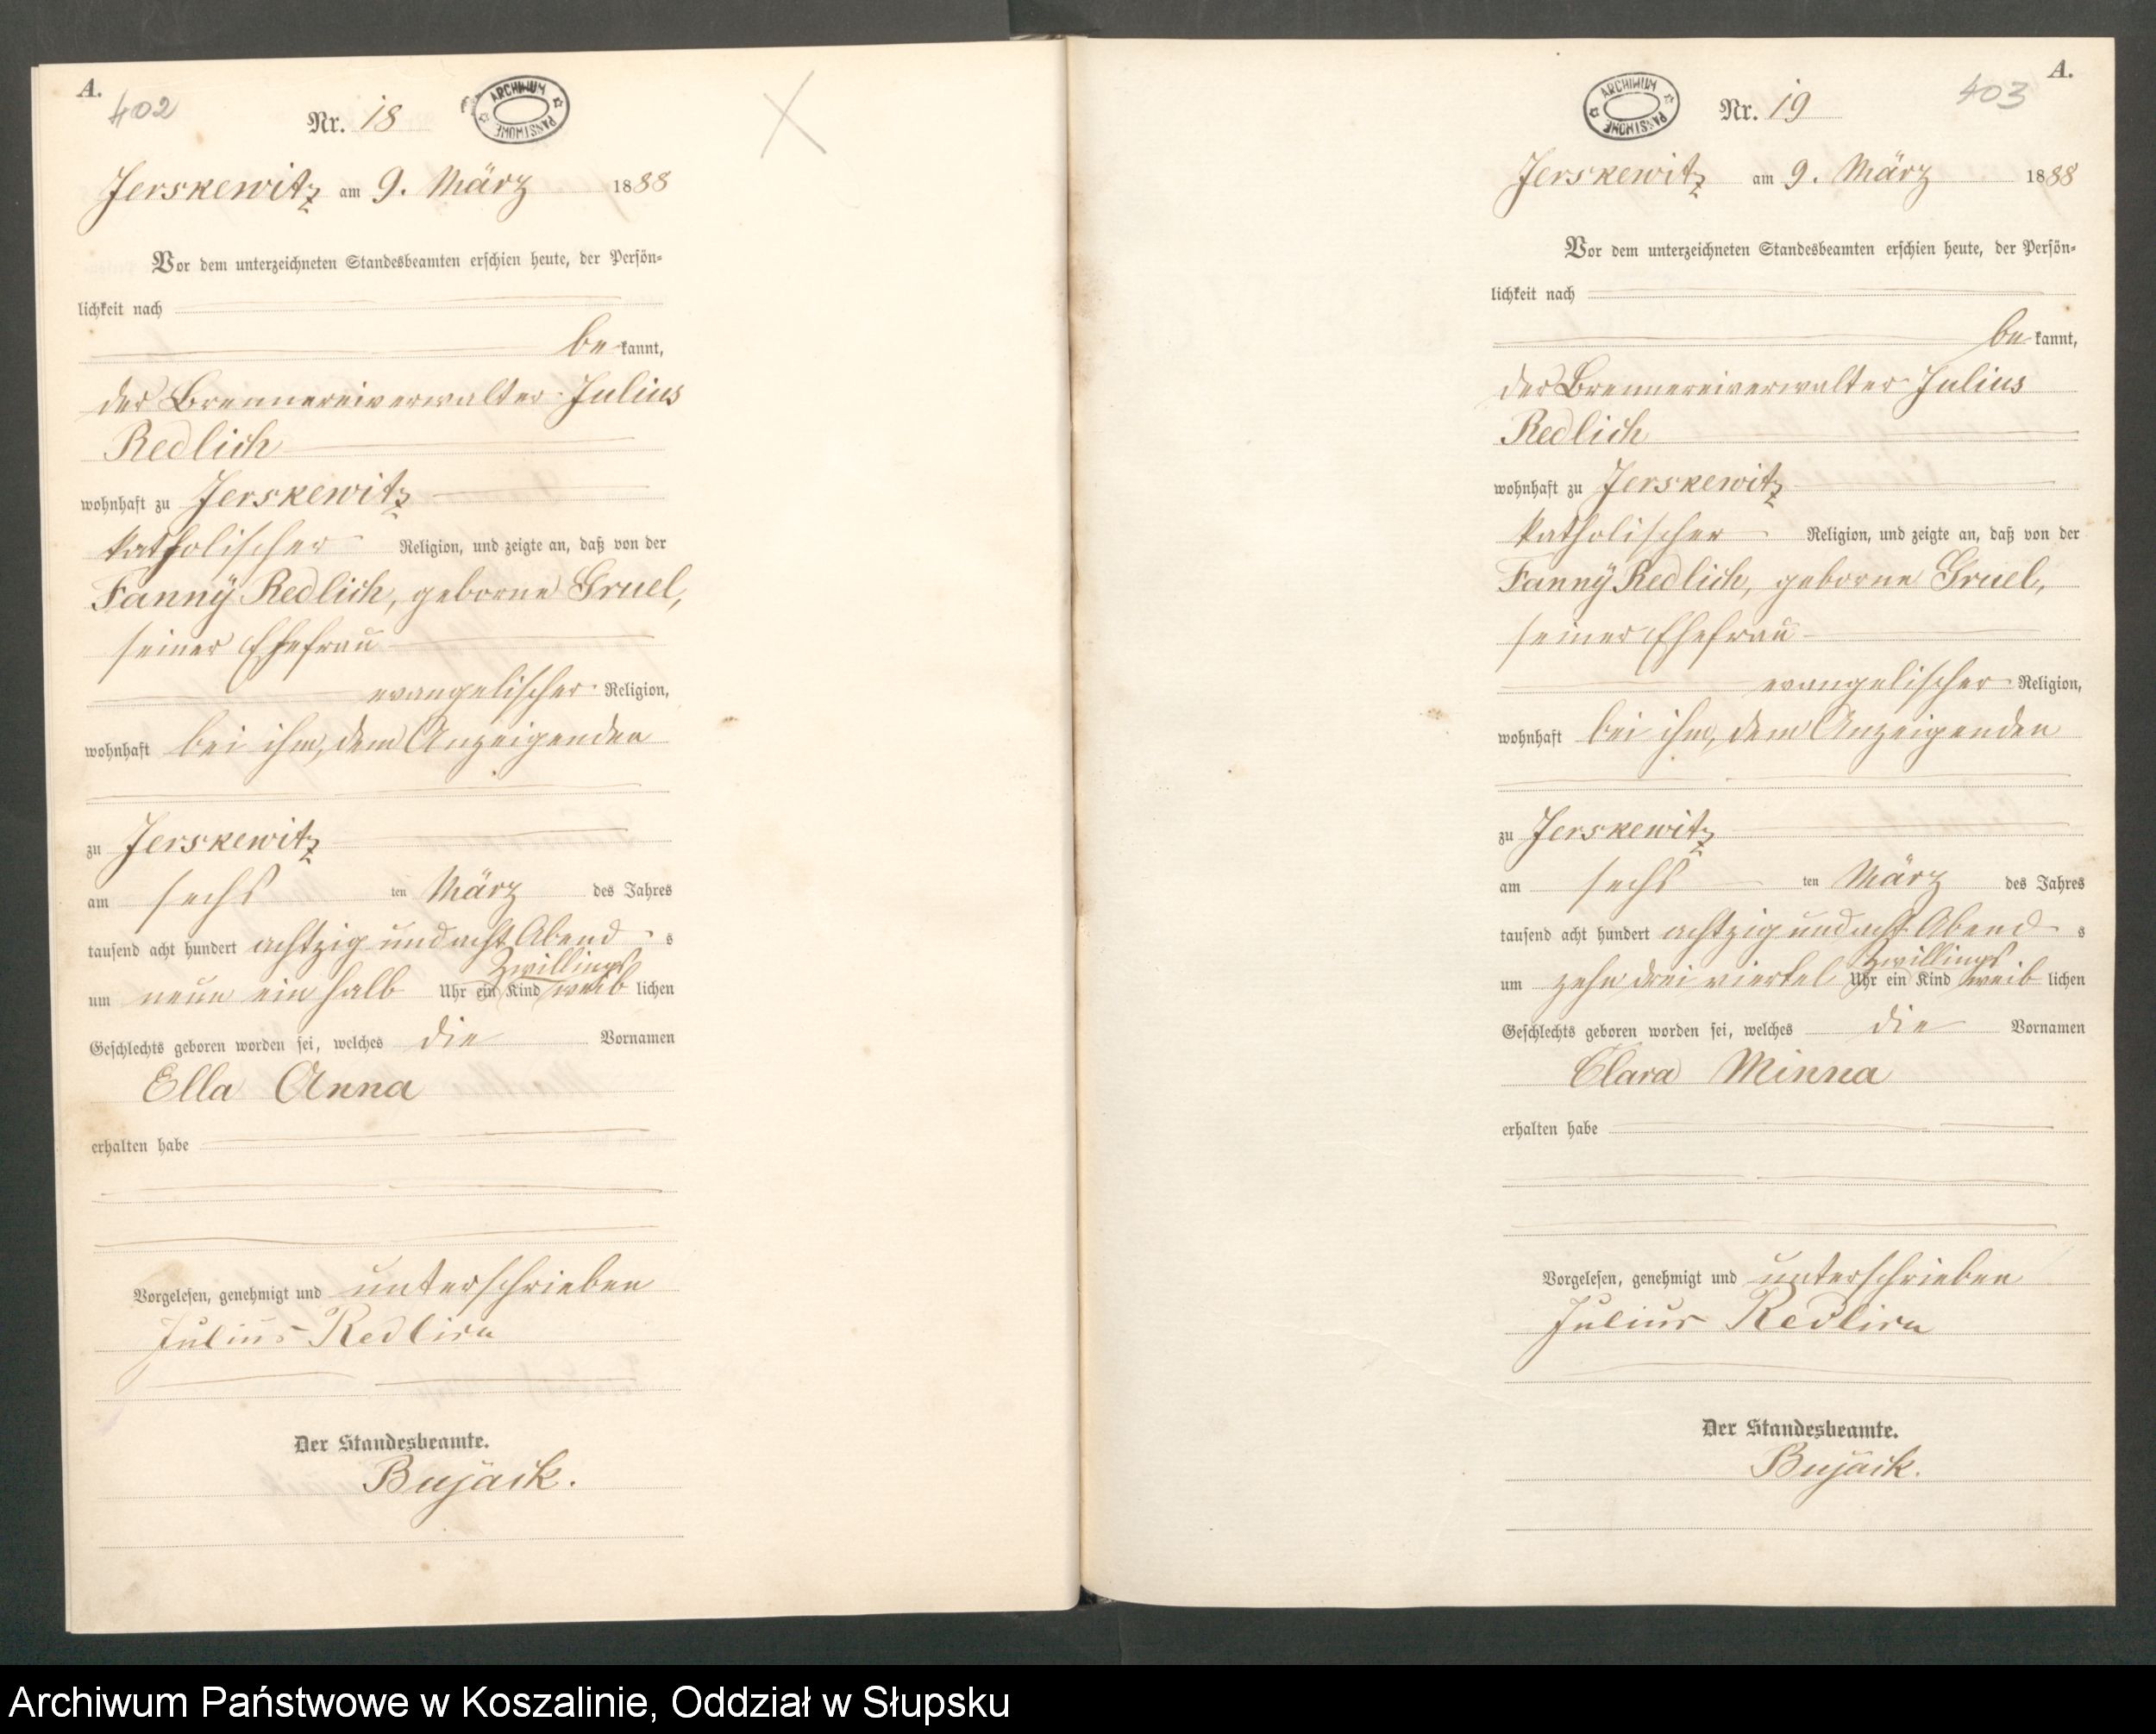 A.
402
Nr. 18
ARCHIWUM PAŃSTWOWE
Jerskewitz am 9. März 1888
Vor dem unterzeichneten Standesbeamten erschien heute, der Persön-
lichkeit nach
be kannt,
der Brennereiverwalter Julius
Redlich
wohnhaft zu Jerskewitz
katholischer Religion, und zeigte an, daß von der
Fanny Redlich, geborne Gruel,
seiner Ehefrau
evangelischer Religion,
wohnhaft bei ihm, dem Anzeigenden
zu Jerskewitz
am sechs ten März des Jahres
tausend acht hundert achtzig und acht Abend s
Zwillings
um neun ein halb Uhr ein Kind weib lichen
Geschlechts geboren worden sei, welches die Vornamen
Ella Anna
erhalten habe
Vorgelesen, genehmigt und unterschrieben
Julius Redlich
Der Standesbeamte.
Bujack.
A.
403
Nr. 19
ARCHIWUM PAŃSTWOWE
Jerskewitz am 9. März 1888
Vor dem unterzeichneten Standesbeamten erschien heute, der Persön-
lichkeit nach
be kannt,
der Brennereiverwalter Julius
Redlich
wohnhaft zu Jerskewitz
katholischer Religion, und zeigte an, daß von der
Fanny Redlich, geborne Gruel,
seiner Ehefrau
evangelischer Religion,
wohnhaft bei ihm, dem Anzeigenden
zu Jerskewitz
am sechs ten März des Jahres
tausend acht hundert achtzig und acht Abend s
Zwillings
um zehn drei viertel Uhr ein Kind weib lichen
Geschlechts geboren worden sei, welches die Vornamen
Clara Minna
erhalten habe
Vorgelesen, genehmigt und unterschrieben
Julius Redlich
Der Standesbeamte.
Bujack.
Archiwum Państwowe w Koszalinie, Oddział w Słupsku